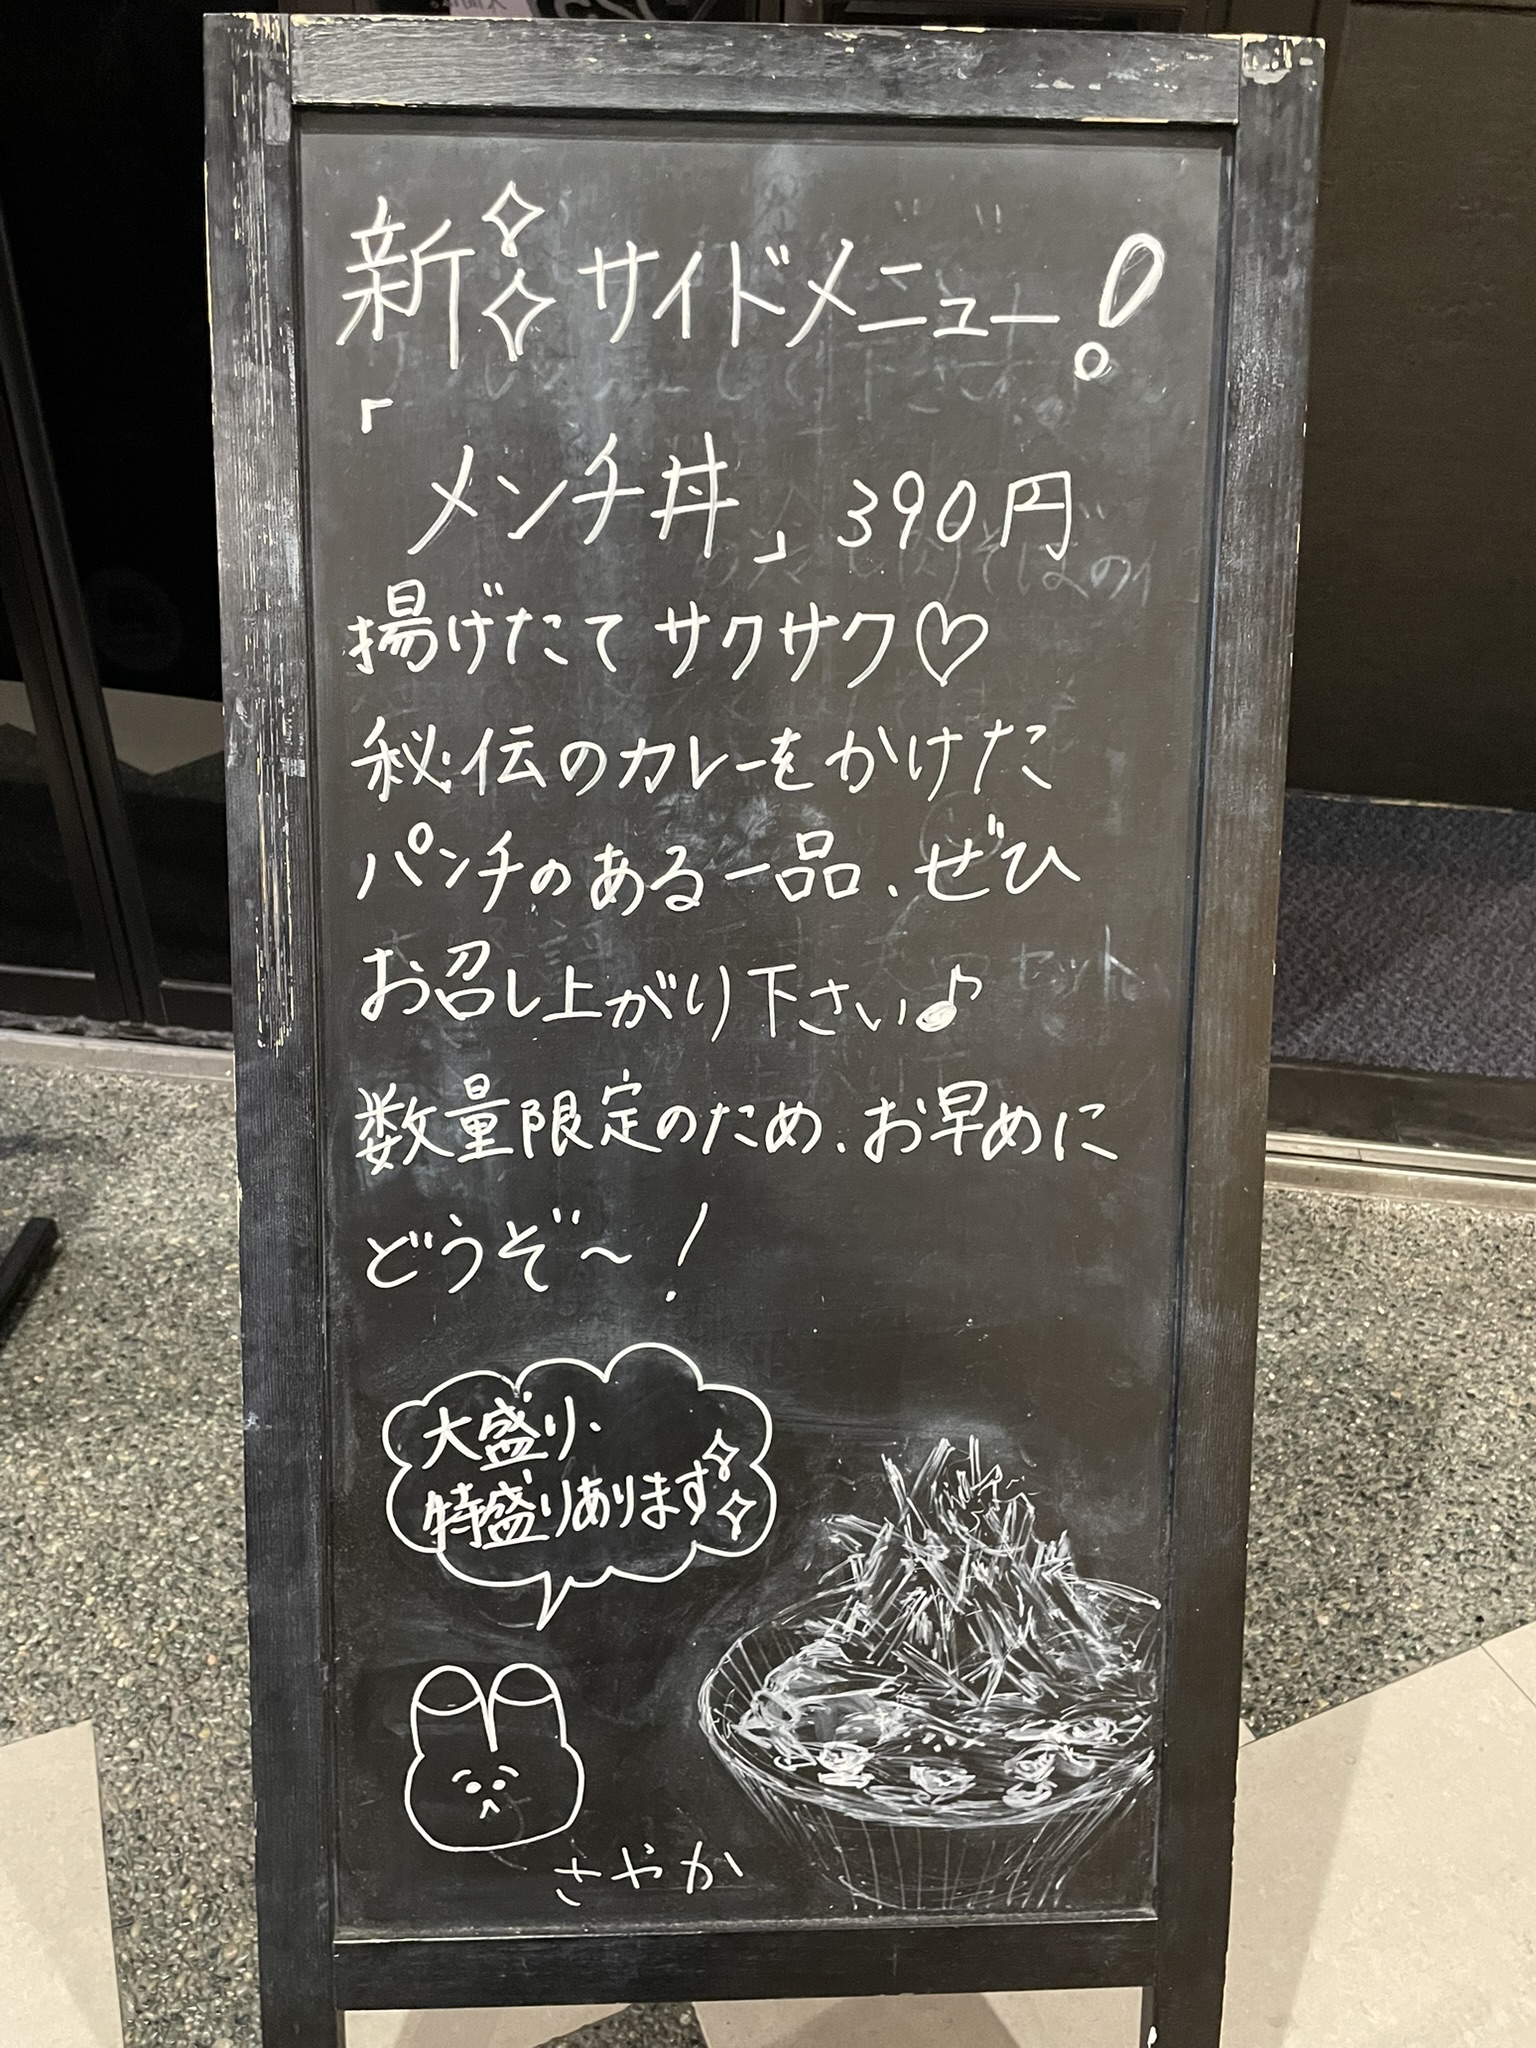 新サイドメニュー!
「メンチ丼」390円
揚げたてサクサク♡
秘伝のカレーをかけた
パンチのある一品、ぜひ
お召し上がり下さい♪
数量限定のため、お早めに
どうぞ〜!
大盛り、
特盛りあります
さやか